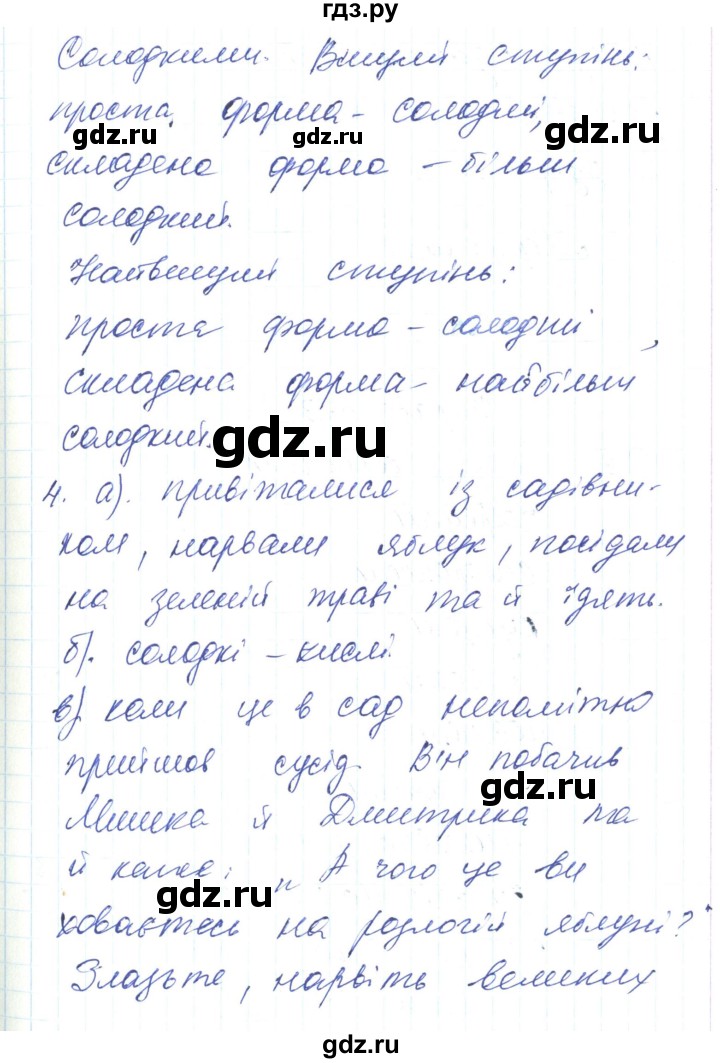 гдз.ру
Солодкими. Вищий ступінь:
проста форма - солодший,
gdz.ru gdz.ru gdz.ru
складена форма - більш
солодкий.
Найвищий ступінь:
проста форма - солодший,
складена форма - найбільш
солодкий.
gdz.ru
4. а). привіталися із садівни-
ком, нарвали яблук, посідали
на зеленій траві та й їдять.
б). солодкі - кислі.
в) коли це в сад непомітно
прийшов сусід. Він побачив
gdz.ru
Мишка й Дмитрика та
й каже: „А чого це ви
gdz.ru
ховаєтесь на розлогій яблуні?
Злазьте, нарвіть великих
gdz.ru